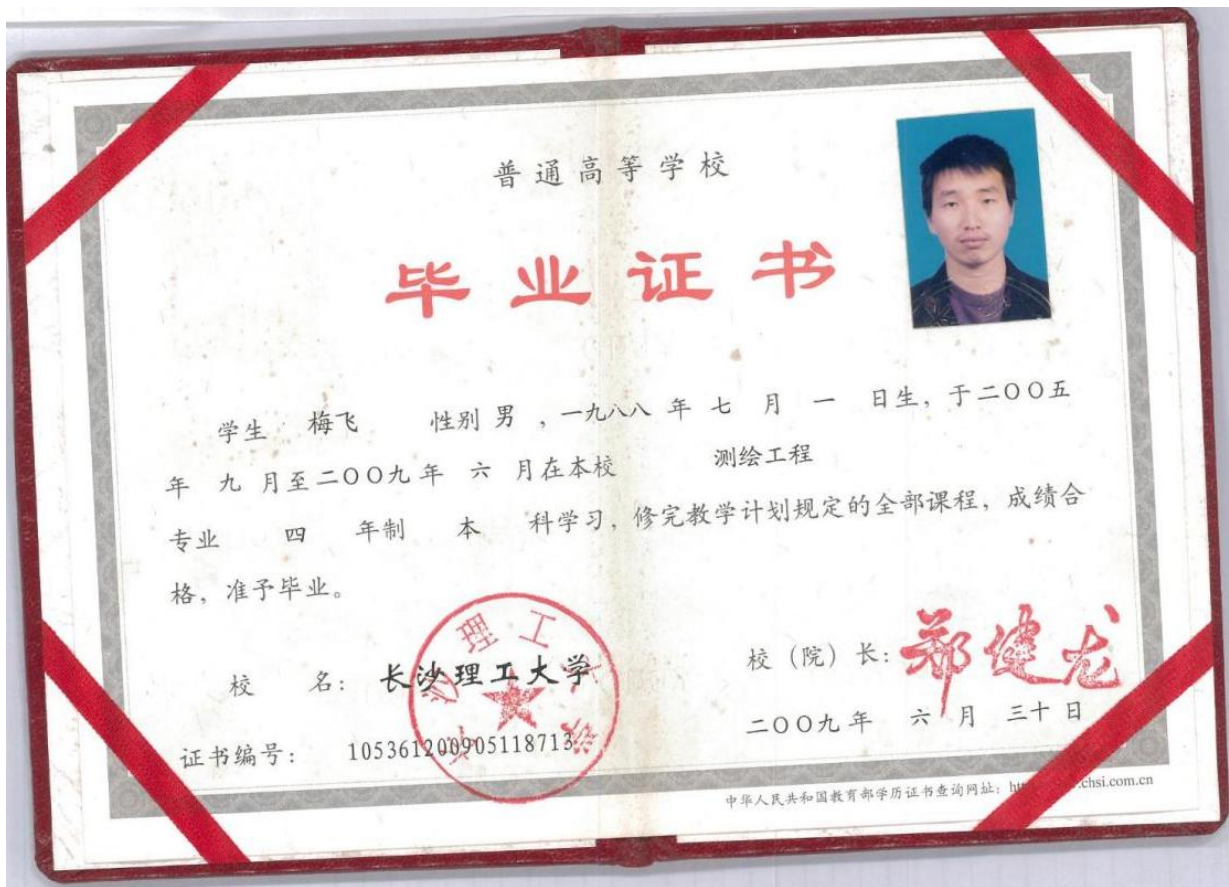 普通高等学校
毕业证书
学生 梅飞 性别 男 ，一九八八 年 七 月 一 日生，于二〇〇五
年 九 月至二〇〇九年 六 月在本校 测绘工程
专业 四 年制 本 科学习，修完教学计划规定的全部课程，成绩合
格，准予毕业。
校 名：长沙理工大学
长沙理工大学
校（院）长：郑健龙
证书编号：105361200905118713
二〇〇九年 六 月 三十 日
中华人民共和国教育部学历证书查询网址：chsi.com.cn